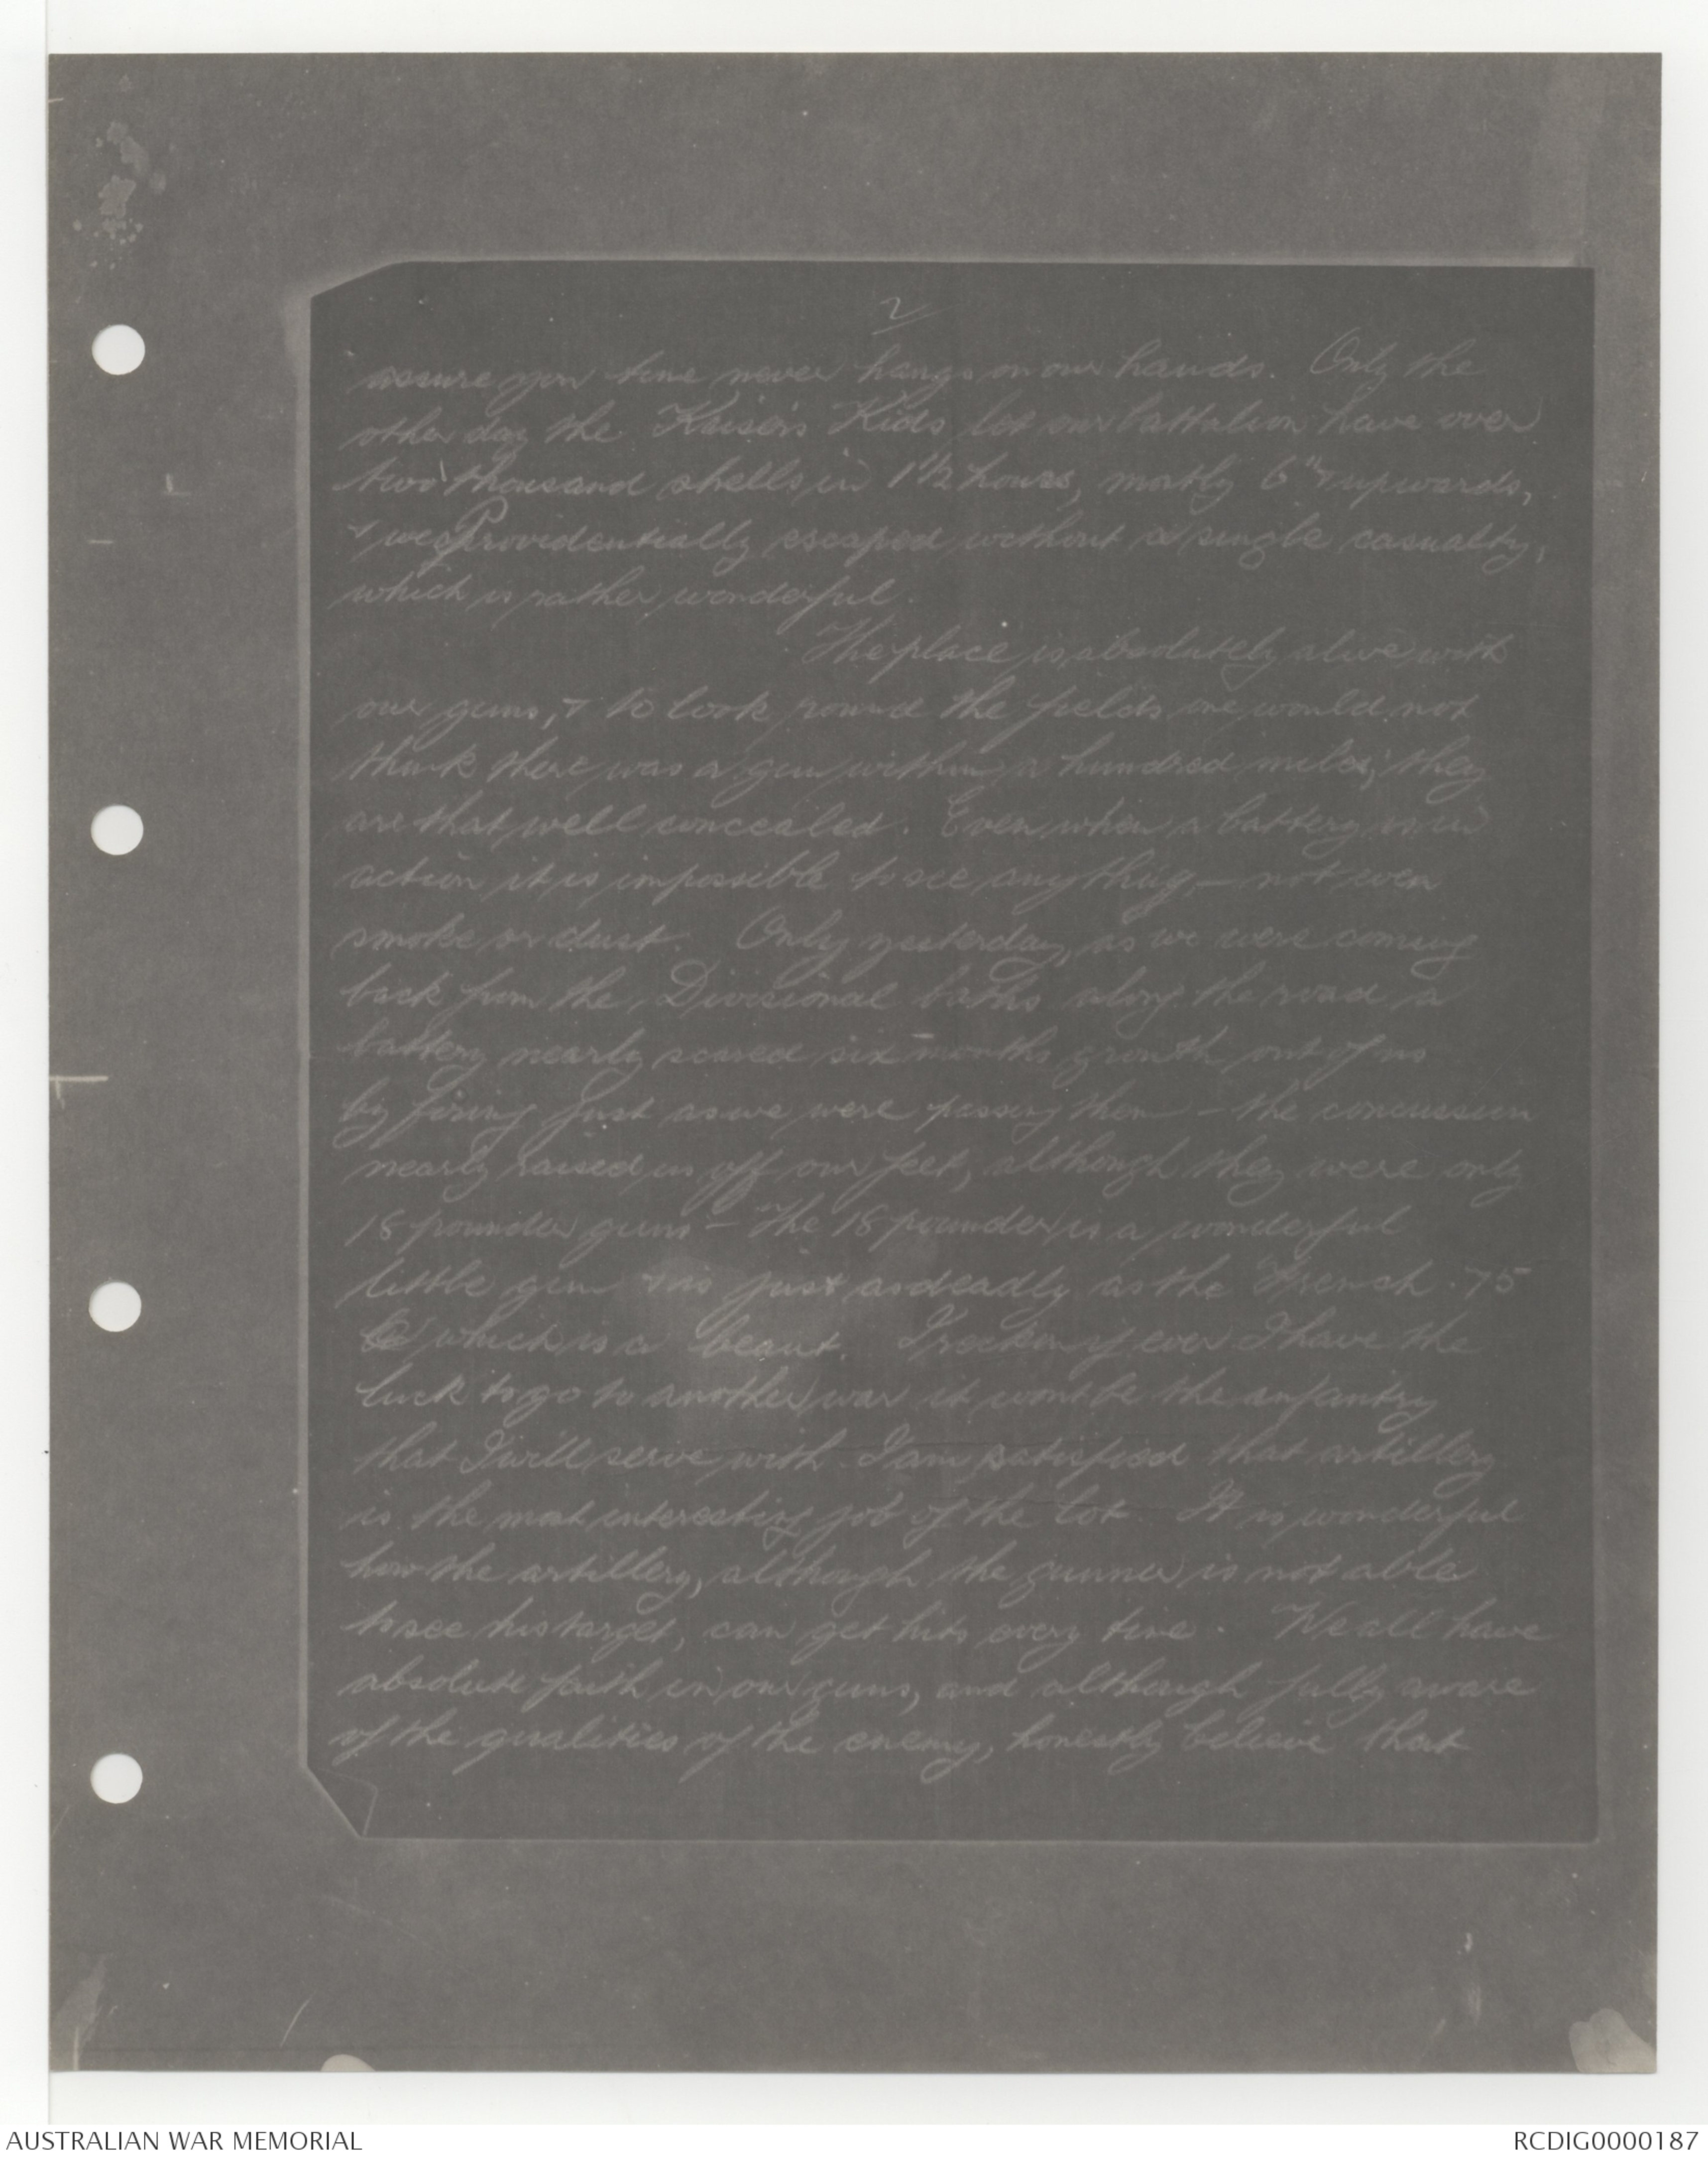 2
assure you time never hangs on our hands. Only the
other day the Kaiser's Kids let our battalion have over
two thousand shells in 1 1/2 hours, mostly 6" & upwards,
& we Providentially escaped without a single casualty,
which is rather wonderful.
The place is absolutely alive with
our guns, & to look round the fields one would not
think there was a gun within a hundred miles; they
are that well concealed. Even when a battery is in
action it is impossible to see anything – not even
smoke or dust. Only yesterday, as we were coming
back from the Divisional baths along the road a
battery nearly scared six months growth out of us
by firing just as we were passing them – the concussion
nearly raised us off our feet, although they were only
18 pounder guns – The 18 pounder is a wonderful
little gun & is just as deadly as the French .75
which is a beaut. I reckon if ever I have the
luck to go to another war it wont be the infantry
that I will serve with. I am satisfied that artillery
is the most interesting job of the lot. It is wonderful
how the artillery, although the gunner is not able
to see his target, can get hits every time. We all have
absolute faith in our guns, and although fully aware
of the qualities of the enemy, honestly believe that
AUSTRALIAN WAR MEMORIAL
RCDIG0000187